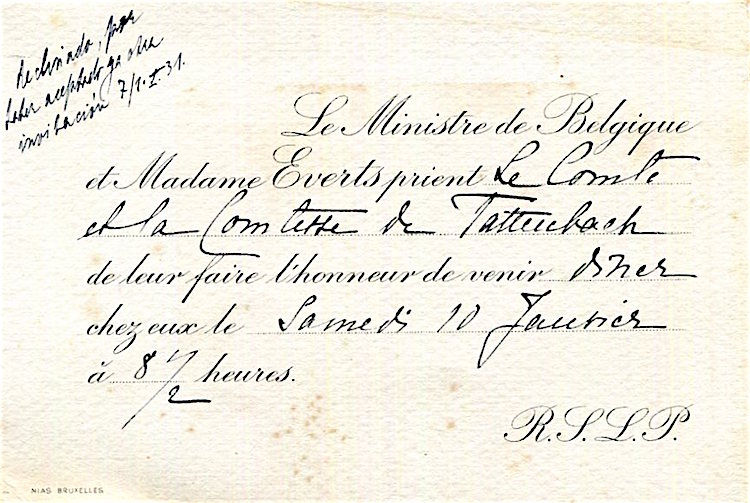 Declinado, por
haber aceptado ya otra
invitación 7/1.I.31.
Le Ministre de Belgique
et Madame Everts prient Le Comte
et la Comtesse de Tattenbach
de leur faire l'honneur de venir diner
chez eux le Samedi 10 Janvier
à 8 1/2 heures.
R.S.L.P.
NIAS BRUXELLES